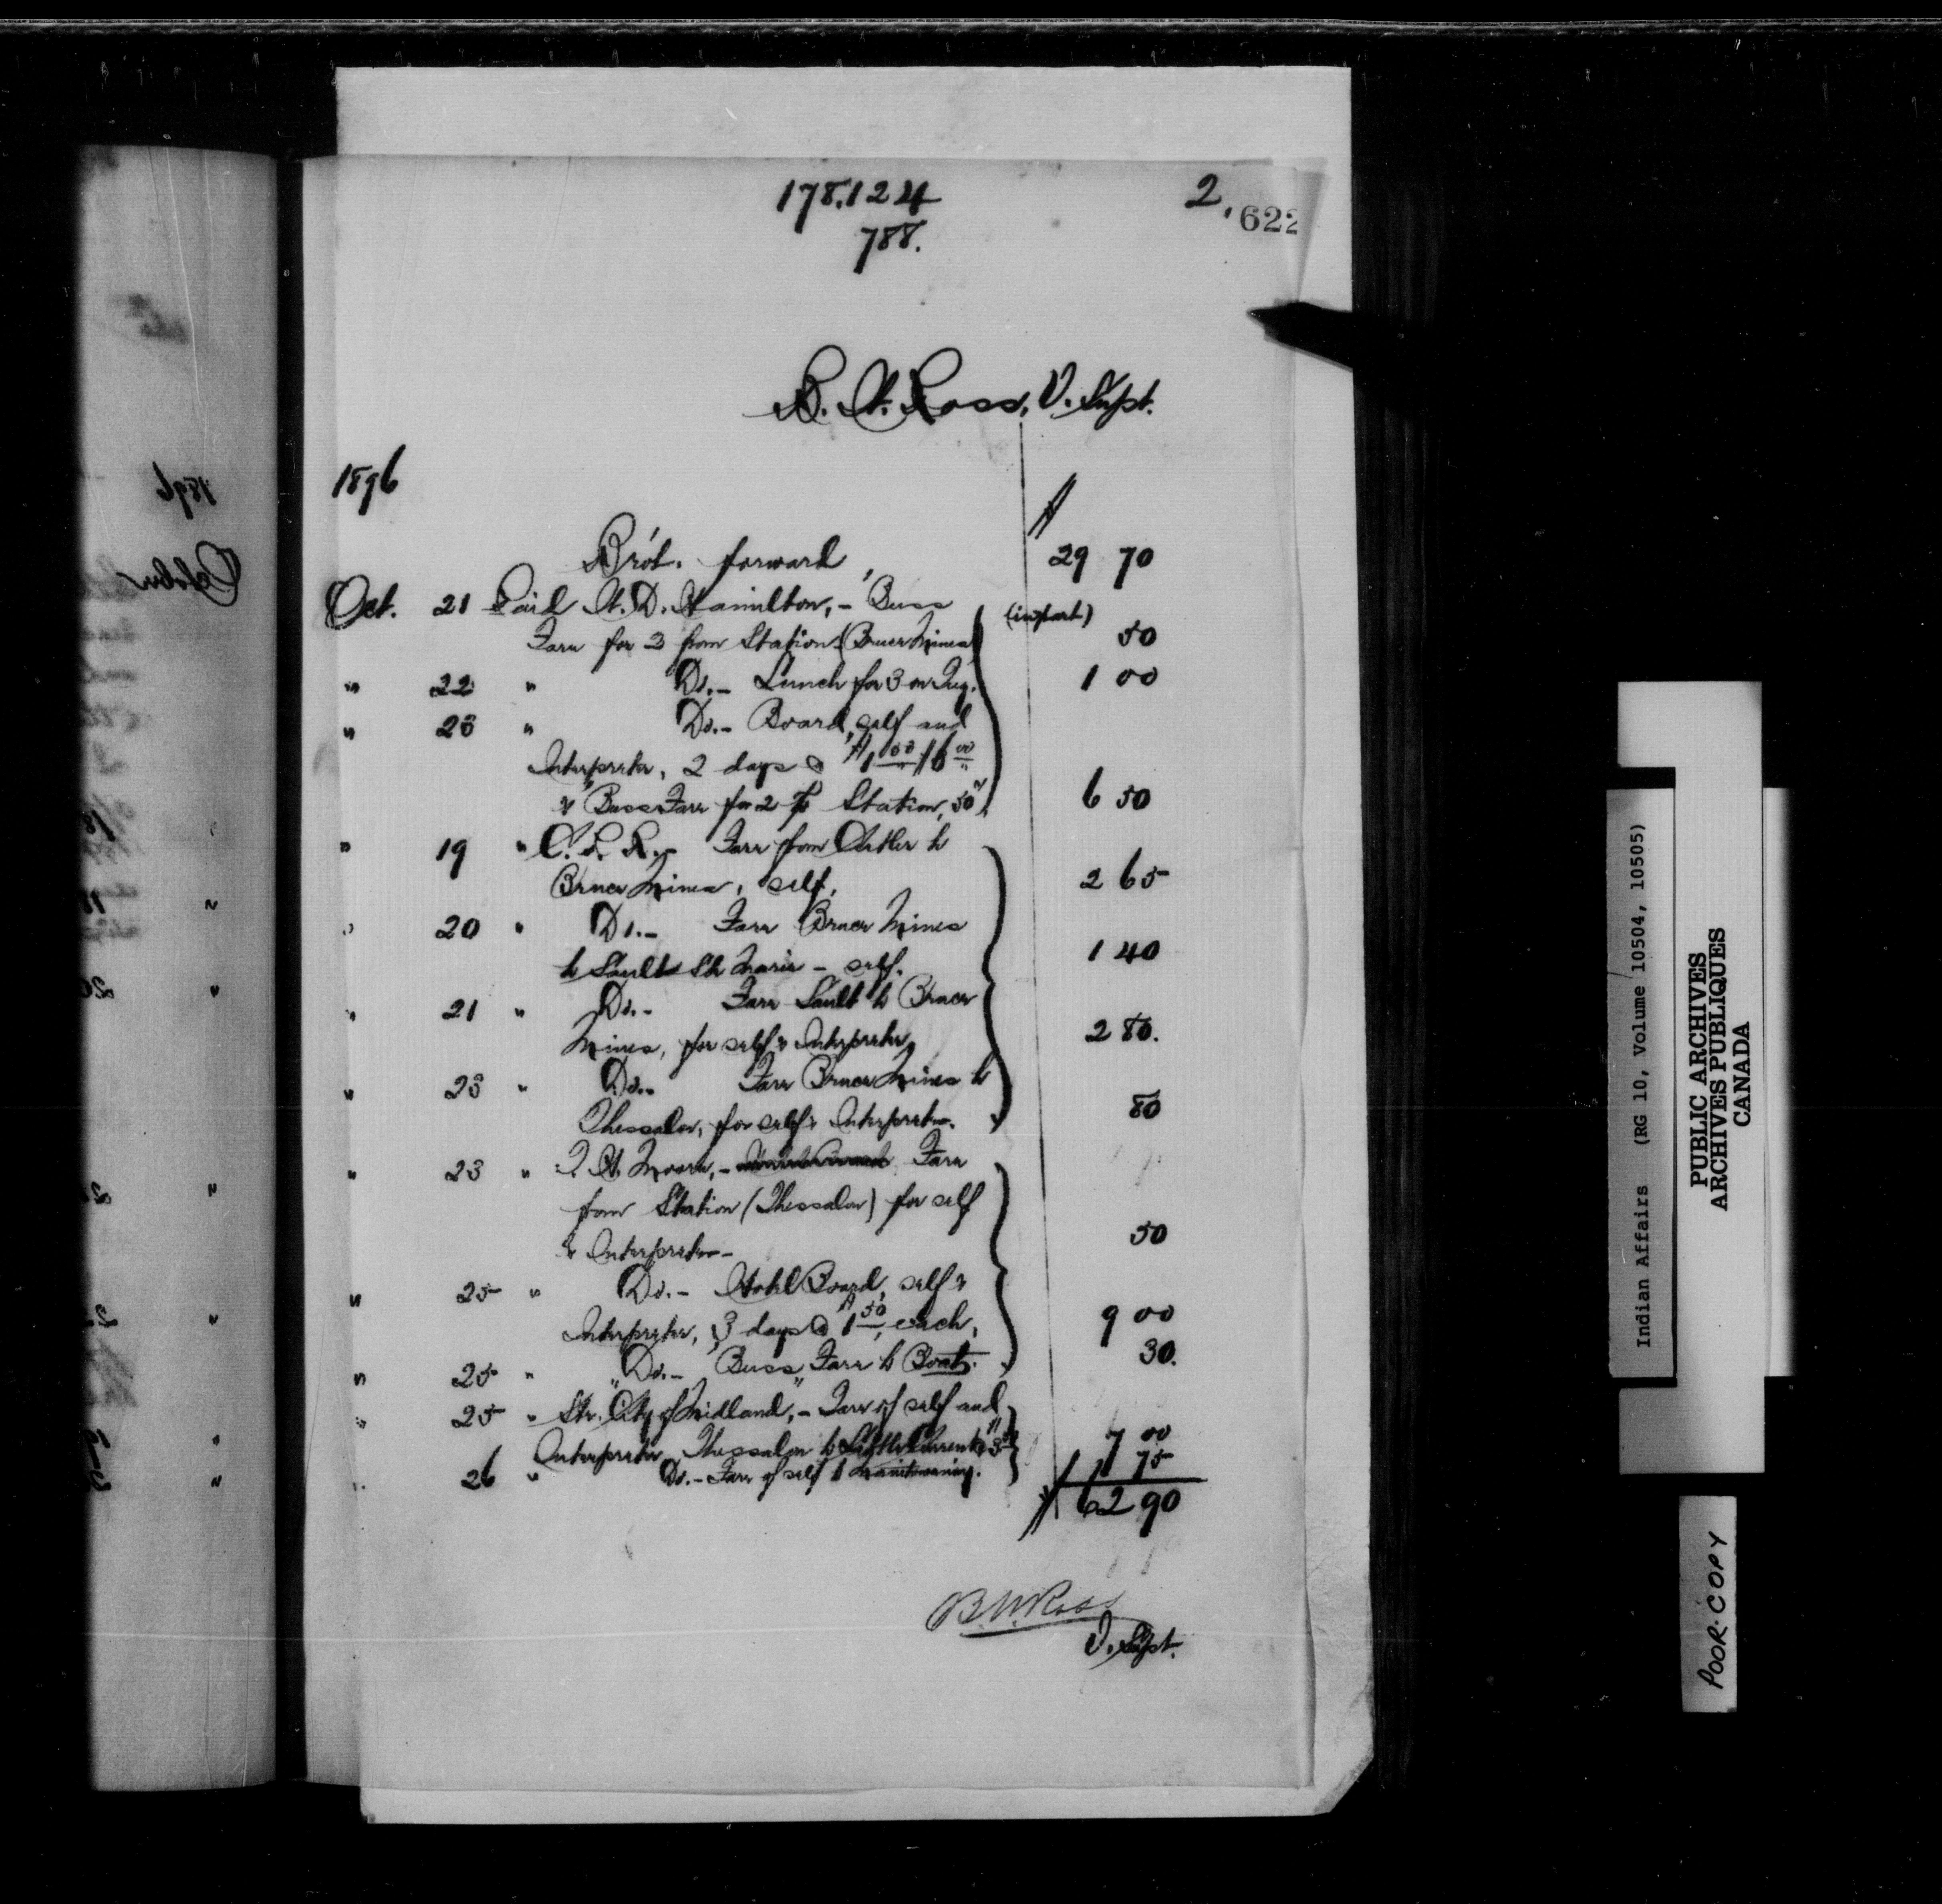 178,124
788.
2,
622
B. W. Ross, V. Supt.
1896
$
Bro't. forward, 29 70
Oct. 21 Paid W. D. Hamilton, - Buss (in part)
Fare for 2 from Station (Bruce Mines) 50
" 22 " Do. - Lunch for 3 on Tug. 1 00
" 23 " Do. - Board, self and
Interpreter, 2 days @ $1 50 $6 00
& "Buss" Fare for 2 to Station, 50 6 50
" 19 " C. P. R. - Fare from Cutler to
Bruce Mines, self, 2 65
" 20 " Do. - Fare Bruce Mines
to Sault Ste Marie - self. 1 40
" 21 " Do. - Fare Sault to Bruce
Mines, for self & Interpreter, 2 80.
" 23 " Do. - Fare Bruce Mines to
Thessalon, for self & Interpreter. 80
" 23 " Moore, - Fare
from Station (Thessalon) for self
& Interpreter - 50
" 25 " Do. - Hotel Board, self &
Interpreter, 3 days @ $1 50, each, 9 00
" 25 " Do. - "Buss" Fare to Boat. 30.
" 25 " Str. "City of Midland", - Fare of self and
Interpreter, Thessalon to Little Current, $3 50 7 00
" 26 " Do. - Fare of self to Manitowaning. 1 75
$ 62 90
B W Ross
V. Supt.
1896
October
Indian Affairs (RG 10, Volume 10504, 10505)
PUBLIC ARCHIVES
ARCHIVES PUBLIQUES
CANADA
POOR COPY